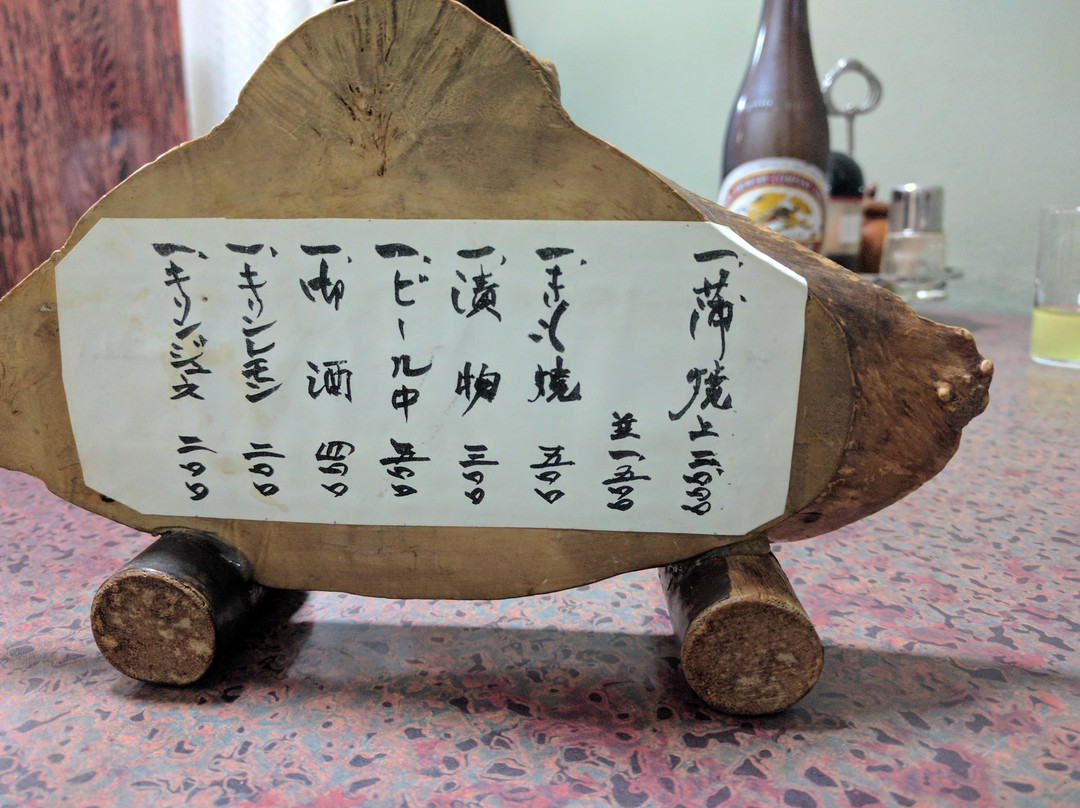 一、蒲焼 上二、〇〇〇
並一、五〇〇
一、ホルモン焼 五〇〇
一、漬物 三〇〇
一、ビール中 五〇〇
一、御酒 四〇〇
一、キリンレモン 二〇〇
一、キリンジュース 二〇〇